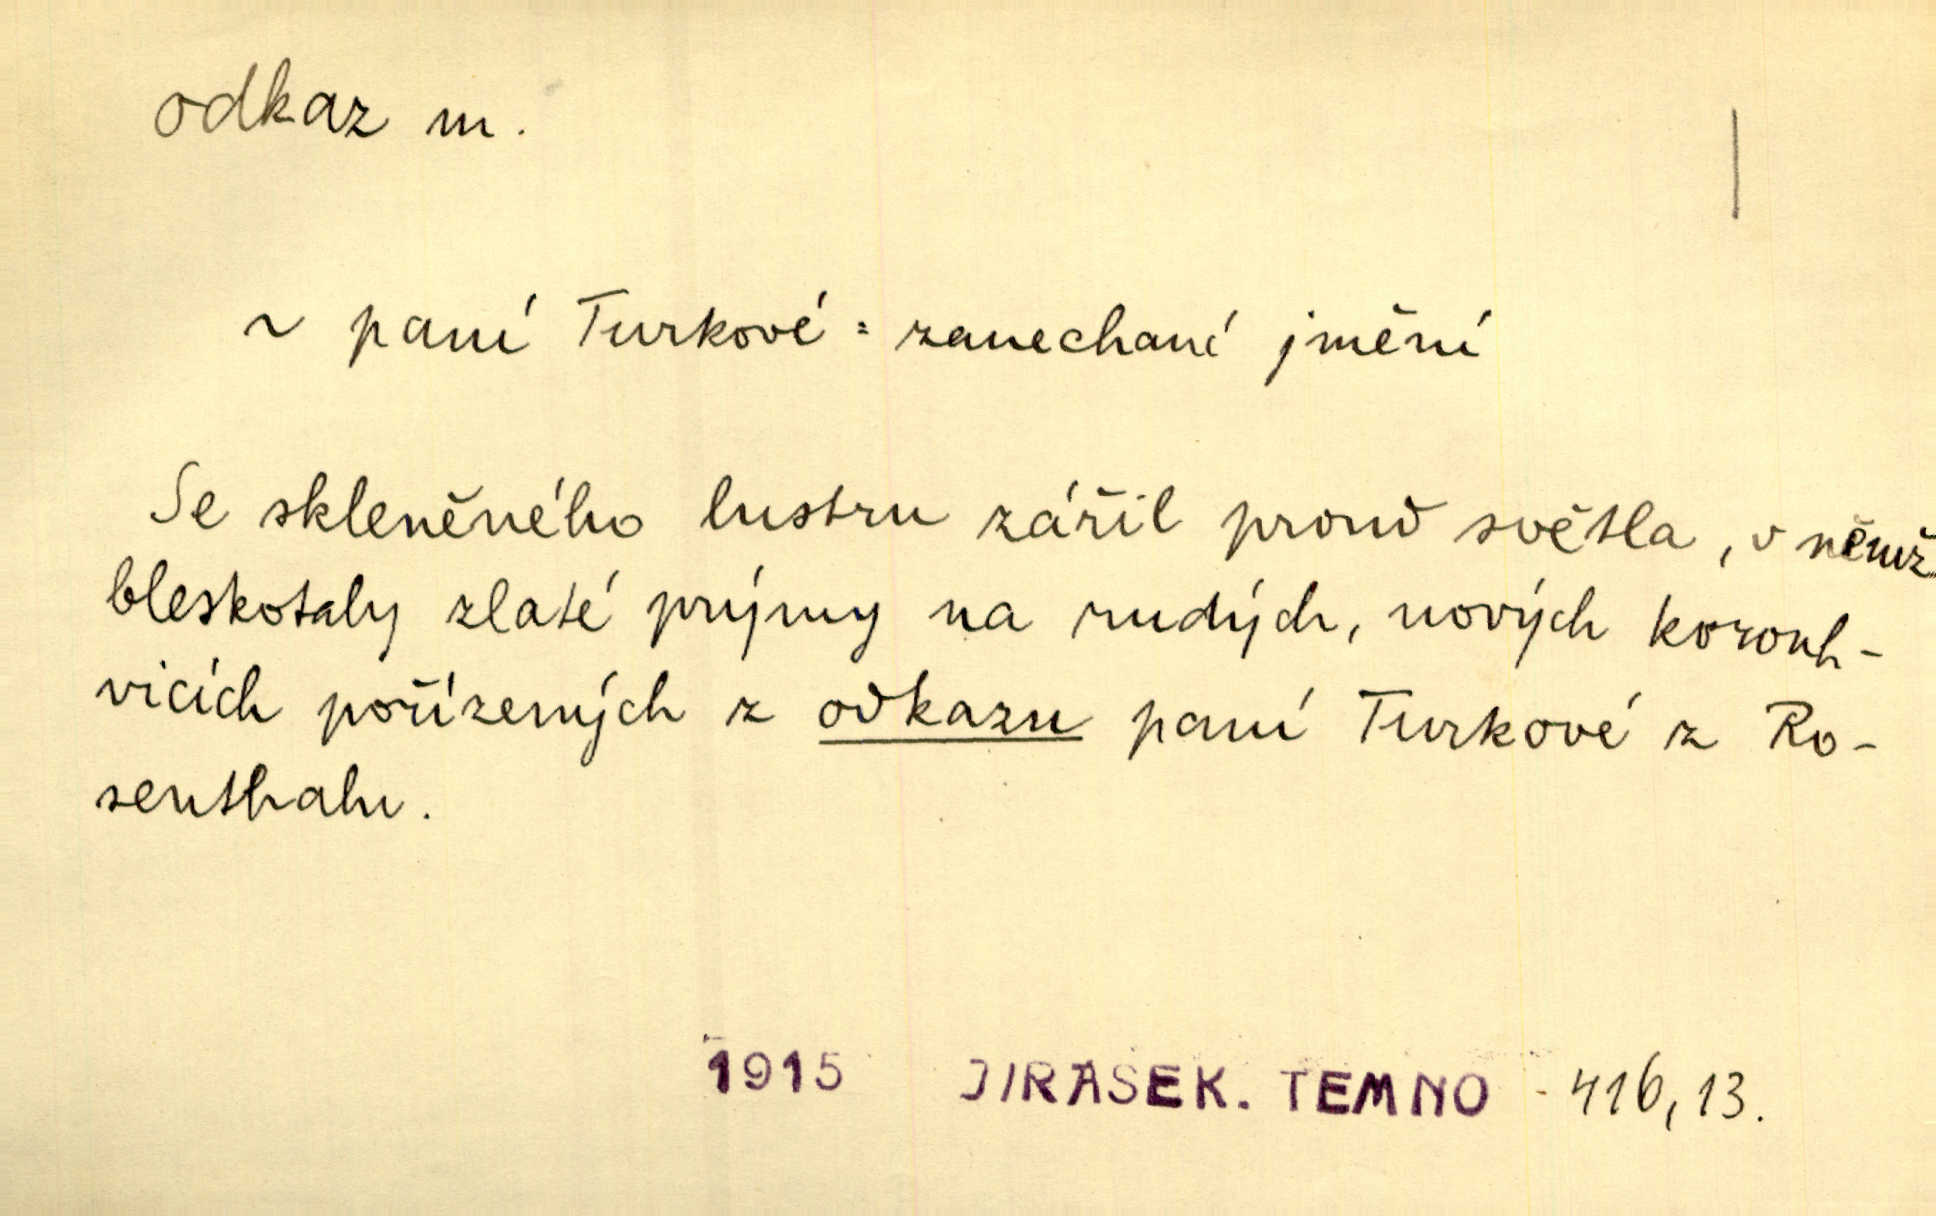 odkaz m.
~ paní Turkové = zanechané jmění
Se skleněného lustru zářil proud světla, v němž
bleskotaly zlaté prýmy na rudých, nových korouh-
vicích pořízených z odkazu paní Turkové z Ro-
senthalu.
1915 JIRÁSEK. TEMNO 416, 13.